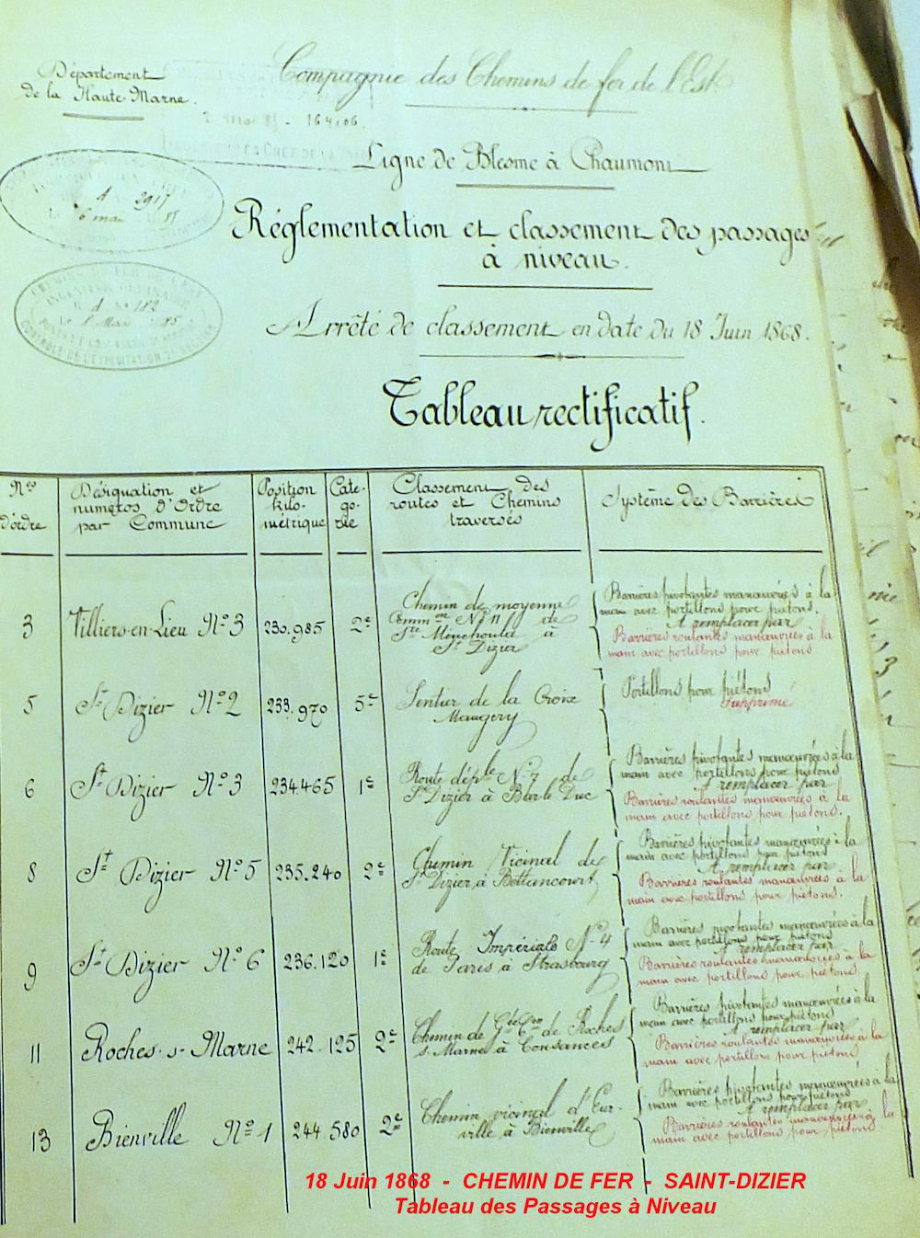 Département
de la Haute-Marne.
Compagnie des Chemins de fer de l'Est
164106.
Ligne de Blesme à Chaumont
A 2917
6 mai
Réglementation et classement des passages
à niveau.
CHEMINS DE FER DE L'EST
A N° 182
Mai 85
CONTROLE DE L'EXPLOITATION
Arrêté de classement en date du 18 Juin 1868.
Tableau rectificatif.
Nos
d'ordre
Désignation et
numéros d'Ordre
par Commune
Position
kilo-
métrique
Caté-
go-
rie
Classement des
routes et Chemins
traversés
Système des Barrières
3
Villiers-en-Lieu N°3
230.985
2e
Chemin de moyenne
Common N°11 de
Ste Menehould à
St Dizier
Barrières pivotantes manœuvrées à la
main avec portillons pour piétons.
A remplacer par
Barrières roulantes manœuvrées à la
main avec portillons pour piétons
5
St Dizier N°2
233.970
5e
Sentier de la Croix
Maugery
Portillons pour piétons
Supprimé
6
St Dizier N°3
234.465
1e
Route déple N°7 de
St Dizier à Bar le Duc
Barrières pivotantes manœuvrées à la
main avec portillons pour piétons
A remplacer par
Barrières roulantes manœuvrées à la
main avec portillons pour piétons.
8
St Dizier N°5
235.240
2e
Chemin Vicinal de
St Dizier à Bettancourt
Barrières pivotantes manœuvrées à la
main avec portillons pour piétons
A remplacer par
Barrières roulantes manœuvrées à la
main avec portillons pour piétons.
9
St Dizier N°6
236.120
1e
Route Impériale N°4
de Paris à Strasbourg
Barrières pivotantes manœuvrées à la
main avec portillons pour piétons
A remplacer par
Barrières roulantes manœuvrées à la
main avec portillons pour piétons.
11
Roches-s-Marne
242.125
2e
Chemin de Gde Con de Roches
s. Marne à Cousances
Barrières pivotantes manœuvrées à la
main avec portillons pour piétons
A remplacer par
Barrières roulantes manœuvrées à la
main avec portillons pour piétons.
13
Bienville N°1
244.580
2e
Chemin vicinal d'Eur-
ville à Bienville
Barrières pivotantes manœuvrées à la
main avec portillons pour piétons
A remplacer par
Barrières roulantes manœuvrées à la
main avec portillons pour piétons.
18 Juin 1868 - CHEMIN DE FER - SAINT-DIZIER
Tableau des Passages à Niveau